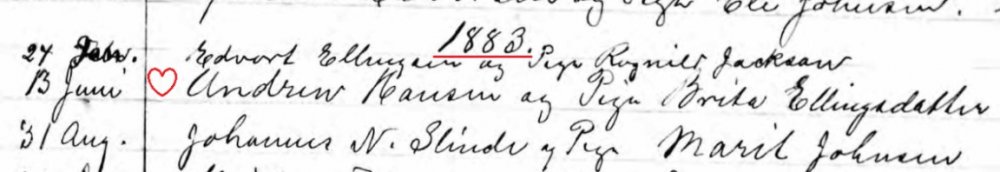 og Pige Eli Johnsen.
1883.
24 Febr. Edvort Ellingsen og Pige Ragnild Jackson
13 Juni Andrew Hansen og Pige Brita Ellingsdatter
31 Aug. Johannes N. Slinde og Pige Marit Johnsen